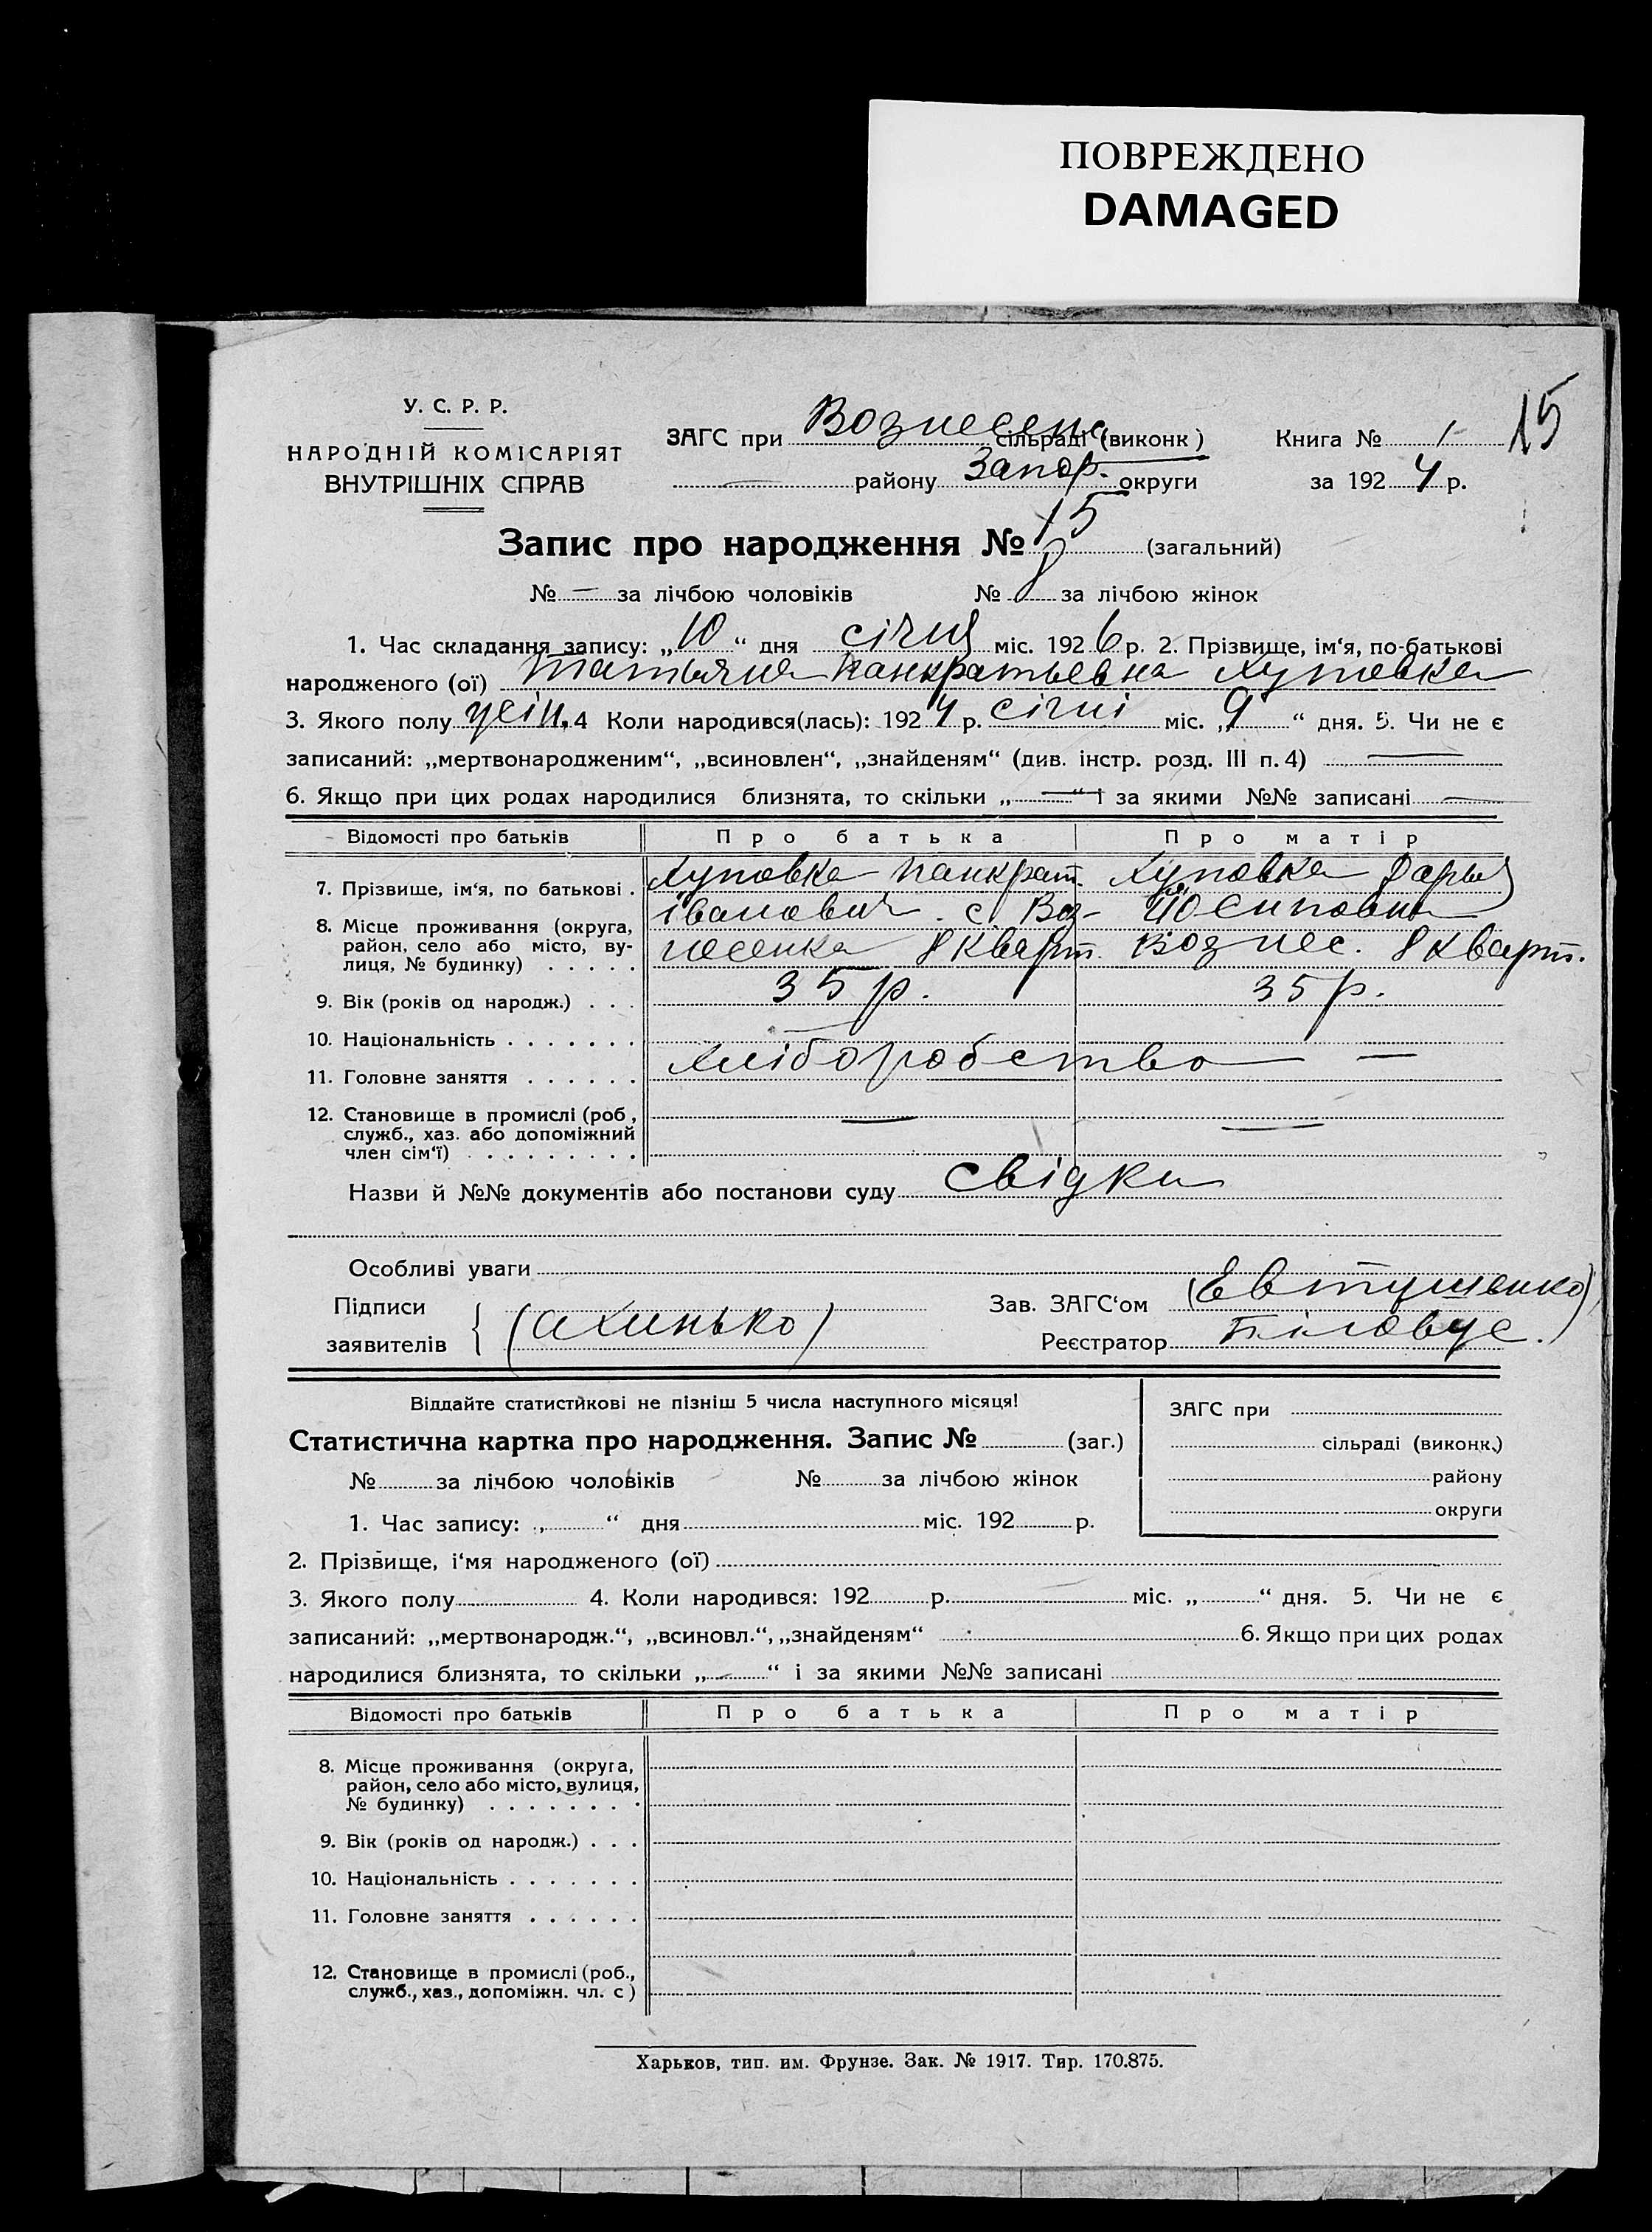 ПОВРЕЖДЕНО
DAMAGED
У. С. Р. Р.
НАРОДНІЙ КОМІСАРІЯТ
ВНУТРІШНІХ СПРАВ
ЗАГС при Вознесенс сільраді (виконк)
районy Запор. округи
Книга № 1
15
за 1924 р.
Запис про народження № 15 (загальний)
№ — за лічбою чоловіків № 8 за лічбою жінок
1. Час складання запису: „10“ дня січня міс. 1926 р. 2. Прізвище, ім‘я, по-батькові
народженого (ої) Татьяна Панкратьевна Хуповка
3. Якого полу жін. 4 Коли народився(лась): 1924 р. січні міс. „9“ дня. 5. Чи не є
записаний: „мертвонародженим“, „всиновлен“, „знайденям“ (див. інстр. розд. III п. 4) —
6. Якщо при цих родах народилися близнята, то скільки „—“ і за якими №№ записані —
Відомості про батьків Про батька Про матір
7. Прізвище, ім‘я, по батькові . Хуповка Панкрат. Хуповка Дарья
8. Місце проживання (округа, район, село або місто, вулиця, № будинку) . . . . . Іванович. с. Воз- Йосиповна
несенка 8 Кварт. Вознес. 8 Кварт.
9. Вік (років од народж.) . . . 35 р. 35 р.
10. Національність . . . . . . . —
11. Головне заняття . . . . . . хліборобство —
12. Становище в промислі (роб,
служб., хаз. або допоміжний
член сім‘ї) . . . . . . . . . — —
Назви й №№ документів або постанови суду свідки
Особливі уваги
Підписи
заявителів { (Ахинько)
Зав. ЗАГС‘ом (Евтушенко)
Реєстратор Біловус.
Віддайте статистикові не пізніш 5 числа наступного місяця!
Статистична картка про народження. Запис № (заг.)
№ за лічбою чоловіків № за лічбою жінок
1. Час запису: „ “ дня міс. 192 р.
ЗАГС при
сільраді (виконк.)
району
округи
2. Прізвище, і‘мя народженого (ої)
3. Якого полу 4. Коли народився: 192 р. міс. „ “ дня. 5. Чи не є
записаний: „мертвонародж.“, „всиновл.“, „знайденям“ 6. Якщо при цих родах
народилися близнята, то скільки „ “ і за якими №№ записані
Відомості про батьків Про батька Про матір
8. Місце проживання (округа,
район, село або місто, вулиця,
№ будинку) . . . . . . .
9. Вік (років од народж.) . . .
10. Національність . . . . . . .
11. Головне заняття . . . . . .
12. Становище в промислі (роб.,
служб., хаз., допоміжн. чл. с )
Харьков, тип. им. Фрунзе. Зак. № 1917. Тир. 170.875.